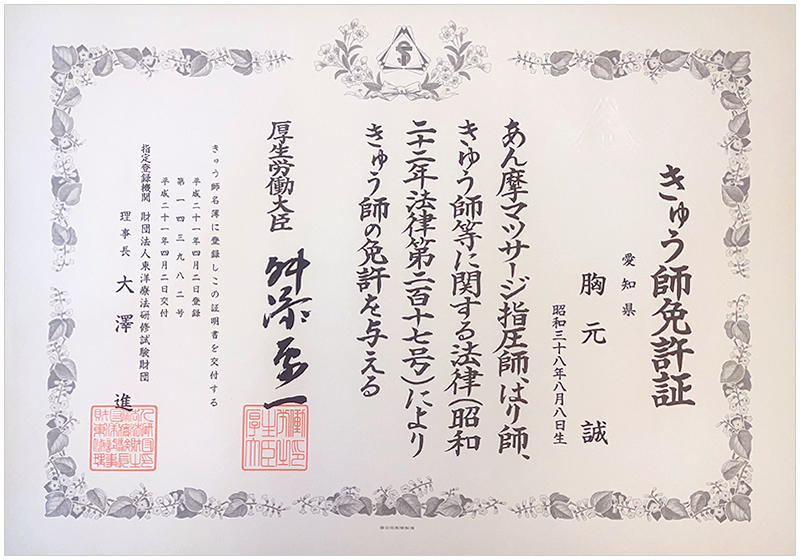 きゅう師免許証
愛知県
胸元 誠
昭和三十八年八月八日生
あん摩マツサージ指圧師、はり師、
きゆう師等に関する法律(昭和
二十二年法律第二百十七号)により
きゅう師の免許を与える
厚生労働大臣 舛添要一
きゅう師名簿に登録しこの証明書を交付する
平成二十一年四月二日登録
第一四三九八二号
平成二十一年四月二日交付
指定登録機関 財団法人東洋療法研修試験財団
理事長 大澤 進